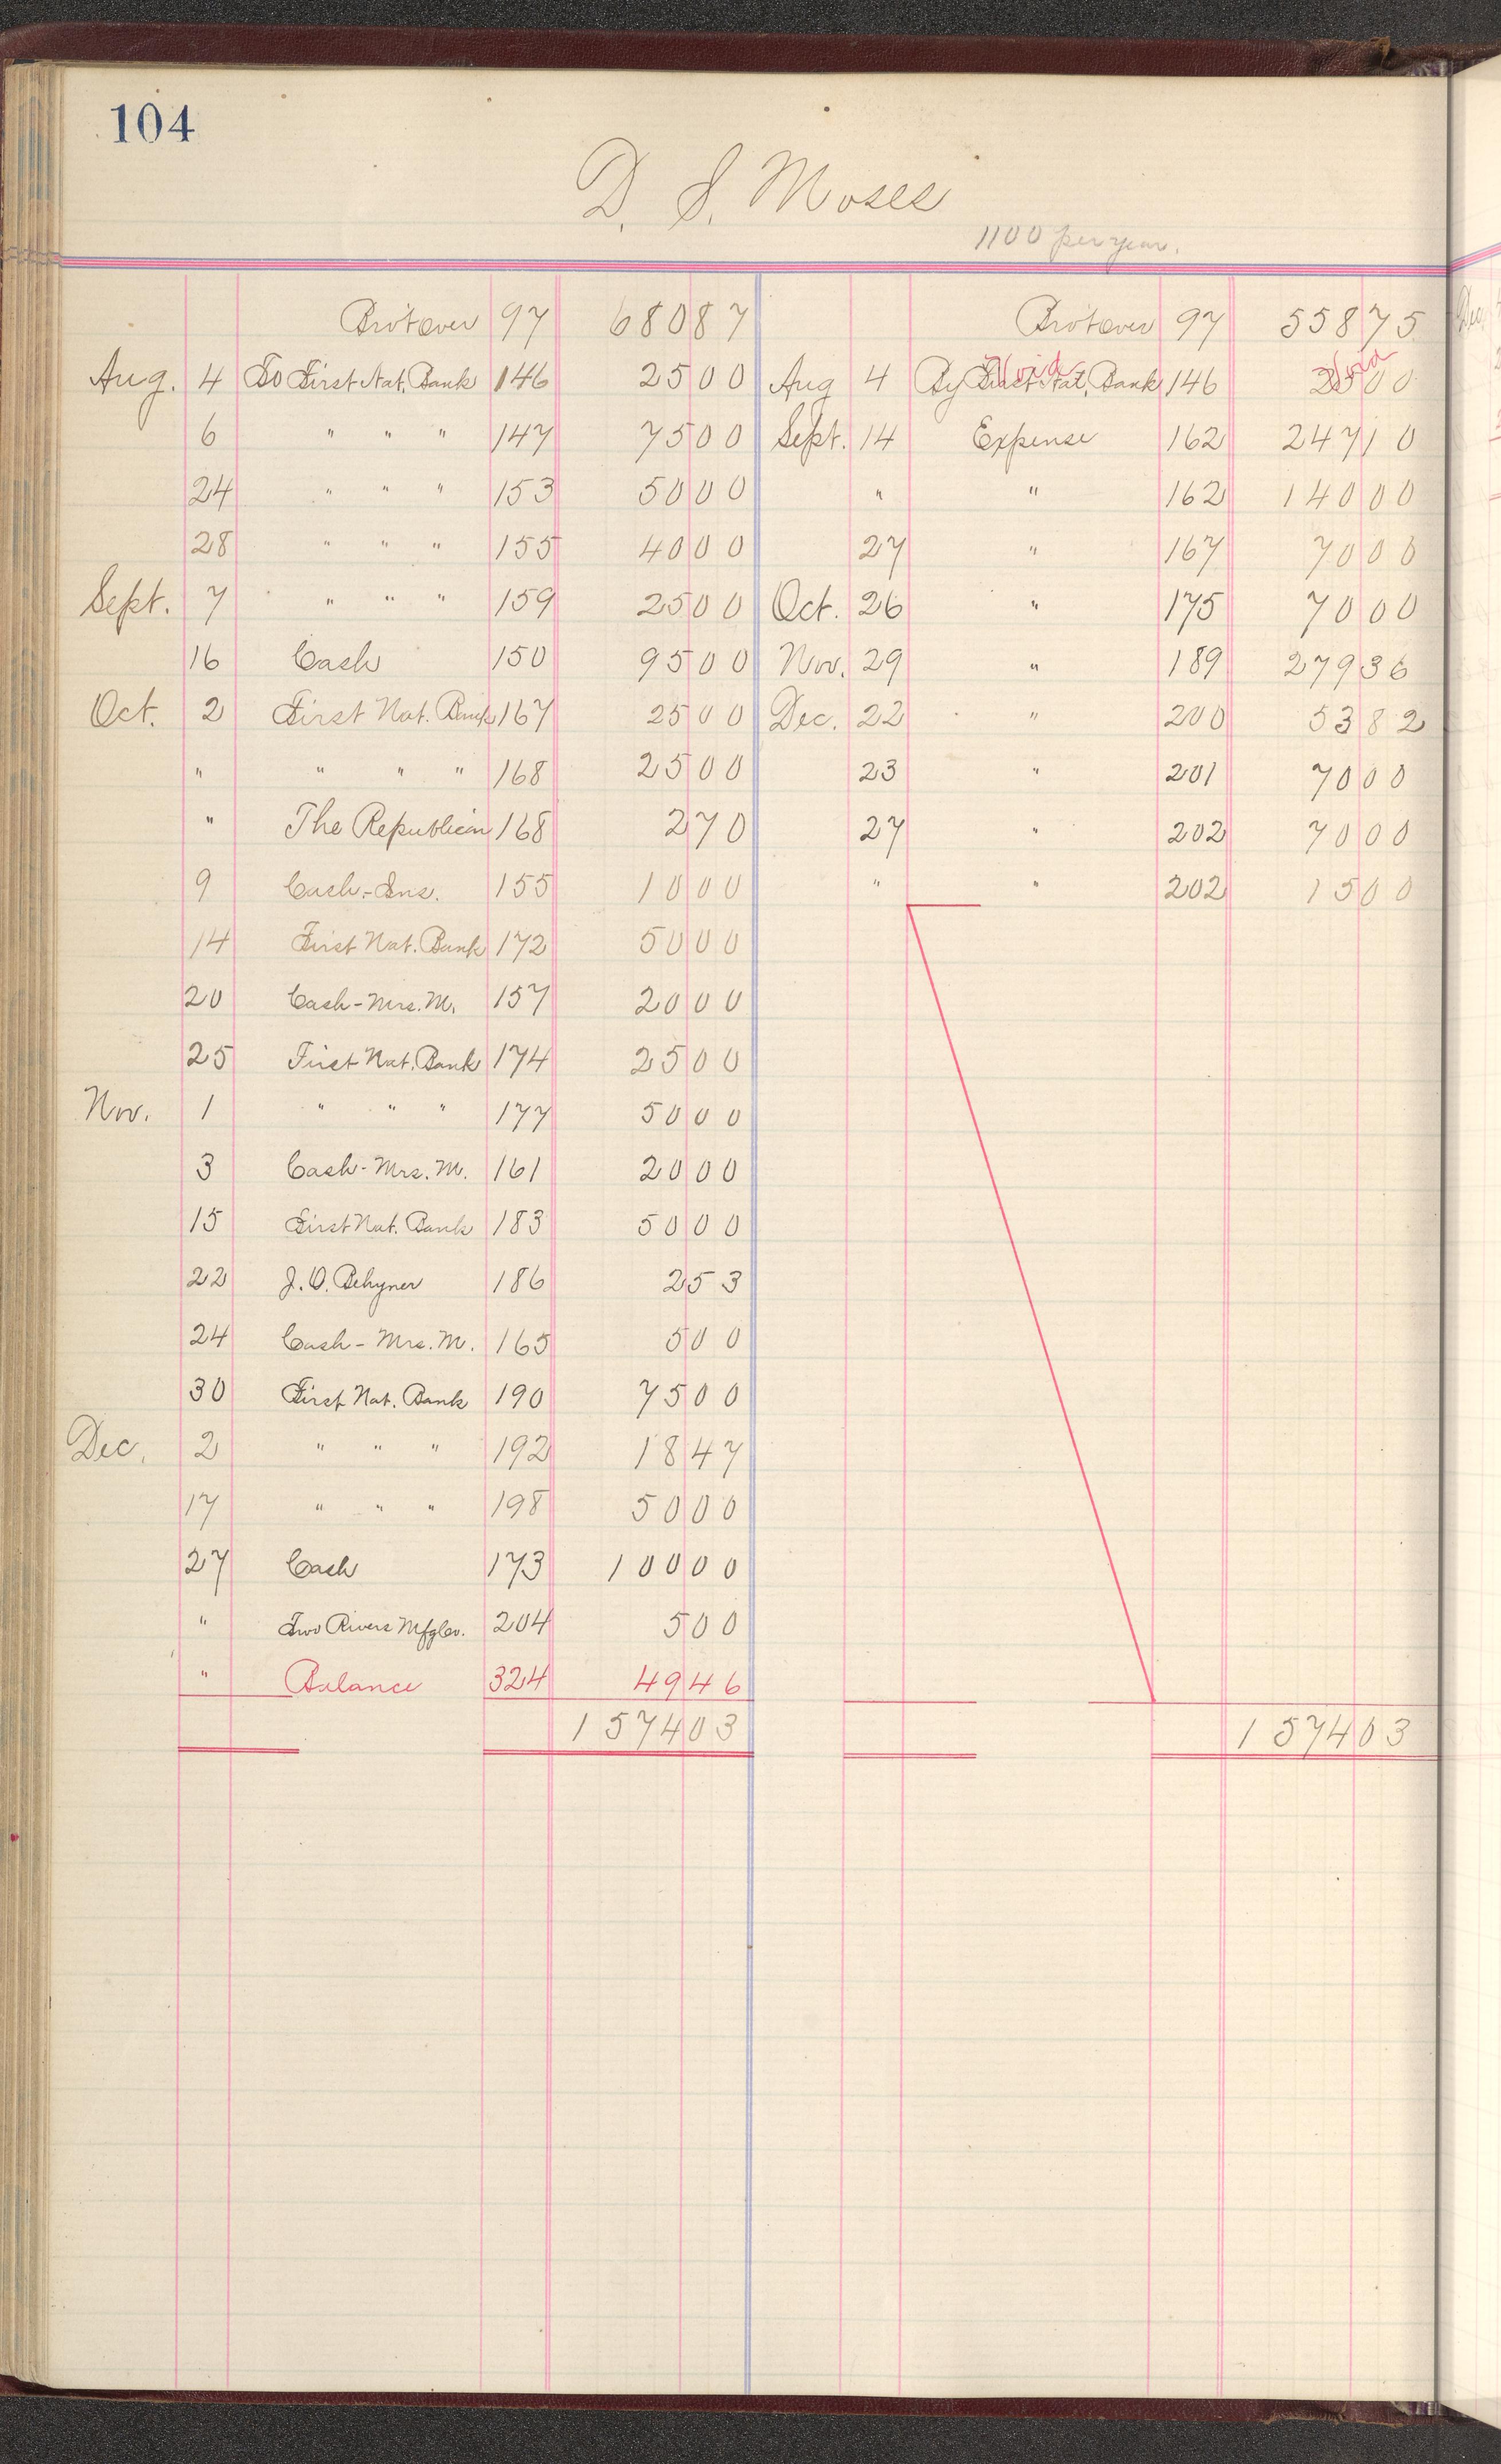 104
D. S. Moses
1100 per year.
Bro't over 97 680 87 Bro't over 97 558 75
Aug. 4 To First Nat. Bank 146 25 00 Aug 4 By First Nat. Bank 146 25 00
Void Void
6 " " " 147 75 00 Sept. 14 Expense 162 247 10
24 " " " 153 50 00 " " 162 140 00
28 " " " 155 40 00 27 " 167 70 00
Sept. 7 " " " 159 25 00 Oct. 26 " 175 70 00
16 Cash 150 95 00 Nov. 29 " 189 279 36
Oct. 2 First Nat. Bank 167 25 00 Dec. 22 " 200 53 82
" " " " 168 25 00 23 " 201 70 00
" The Republican 168 2 70 27 " 202 70 00
9 Cash-Ins. 155 10 00 " " 202 15 00
14 First Nat. Bank 172 50 00
20 Cash-Mrs. M. 157 20 00
25 First Nat. Bank 174 25 00
Nov. 1 " " " 177 50 00
3 Cash-Mrs. M. 161 20 00
15 First Nat. Bank 183 50 00
22 J. O. Behymer 186 2 53
24 Cash-Mrs. M. 165 5 00
30 First Nat. Bank 190 75 00
Dec. 2 " " " 192 18 47
17 " " " 198 50 00
27 Cash 173 100 00
" Two Rivers Mfg Co. 204 5 00
" Balance 324 49 46
1574 03 1574 03